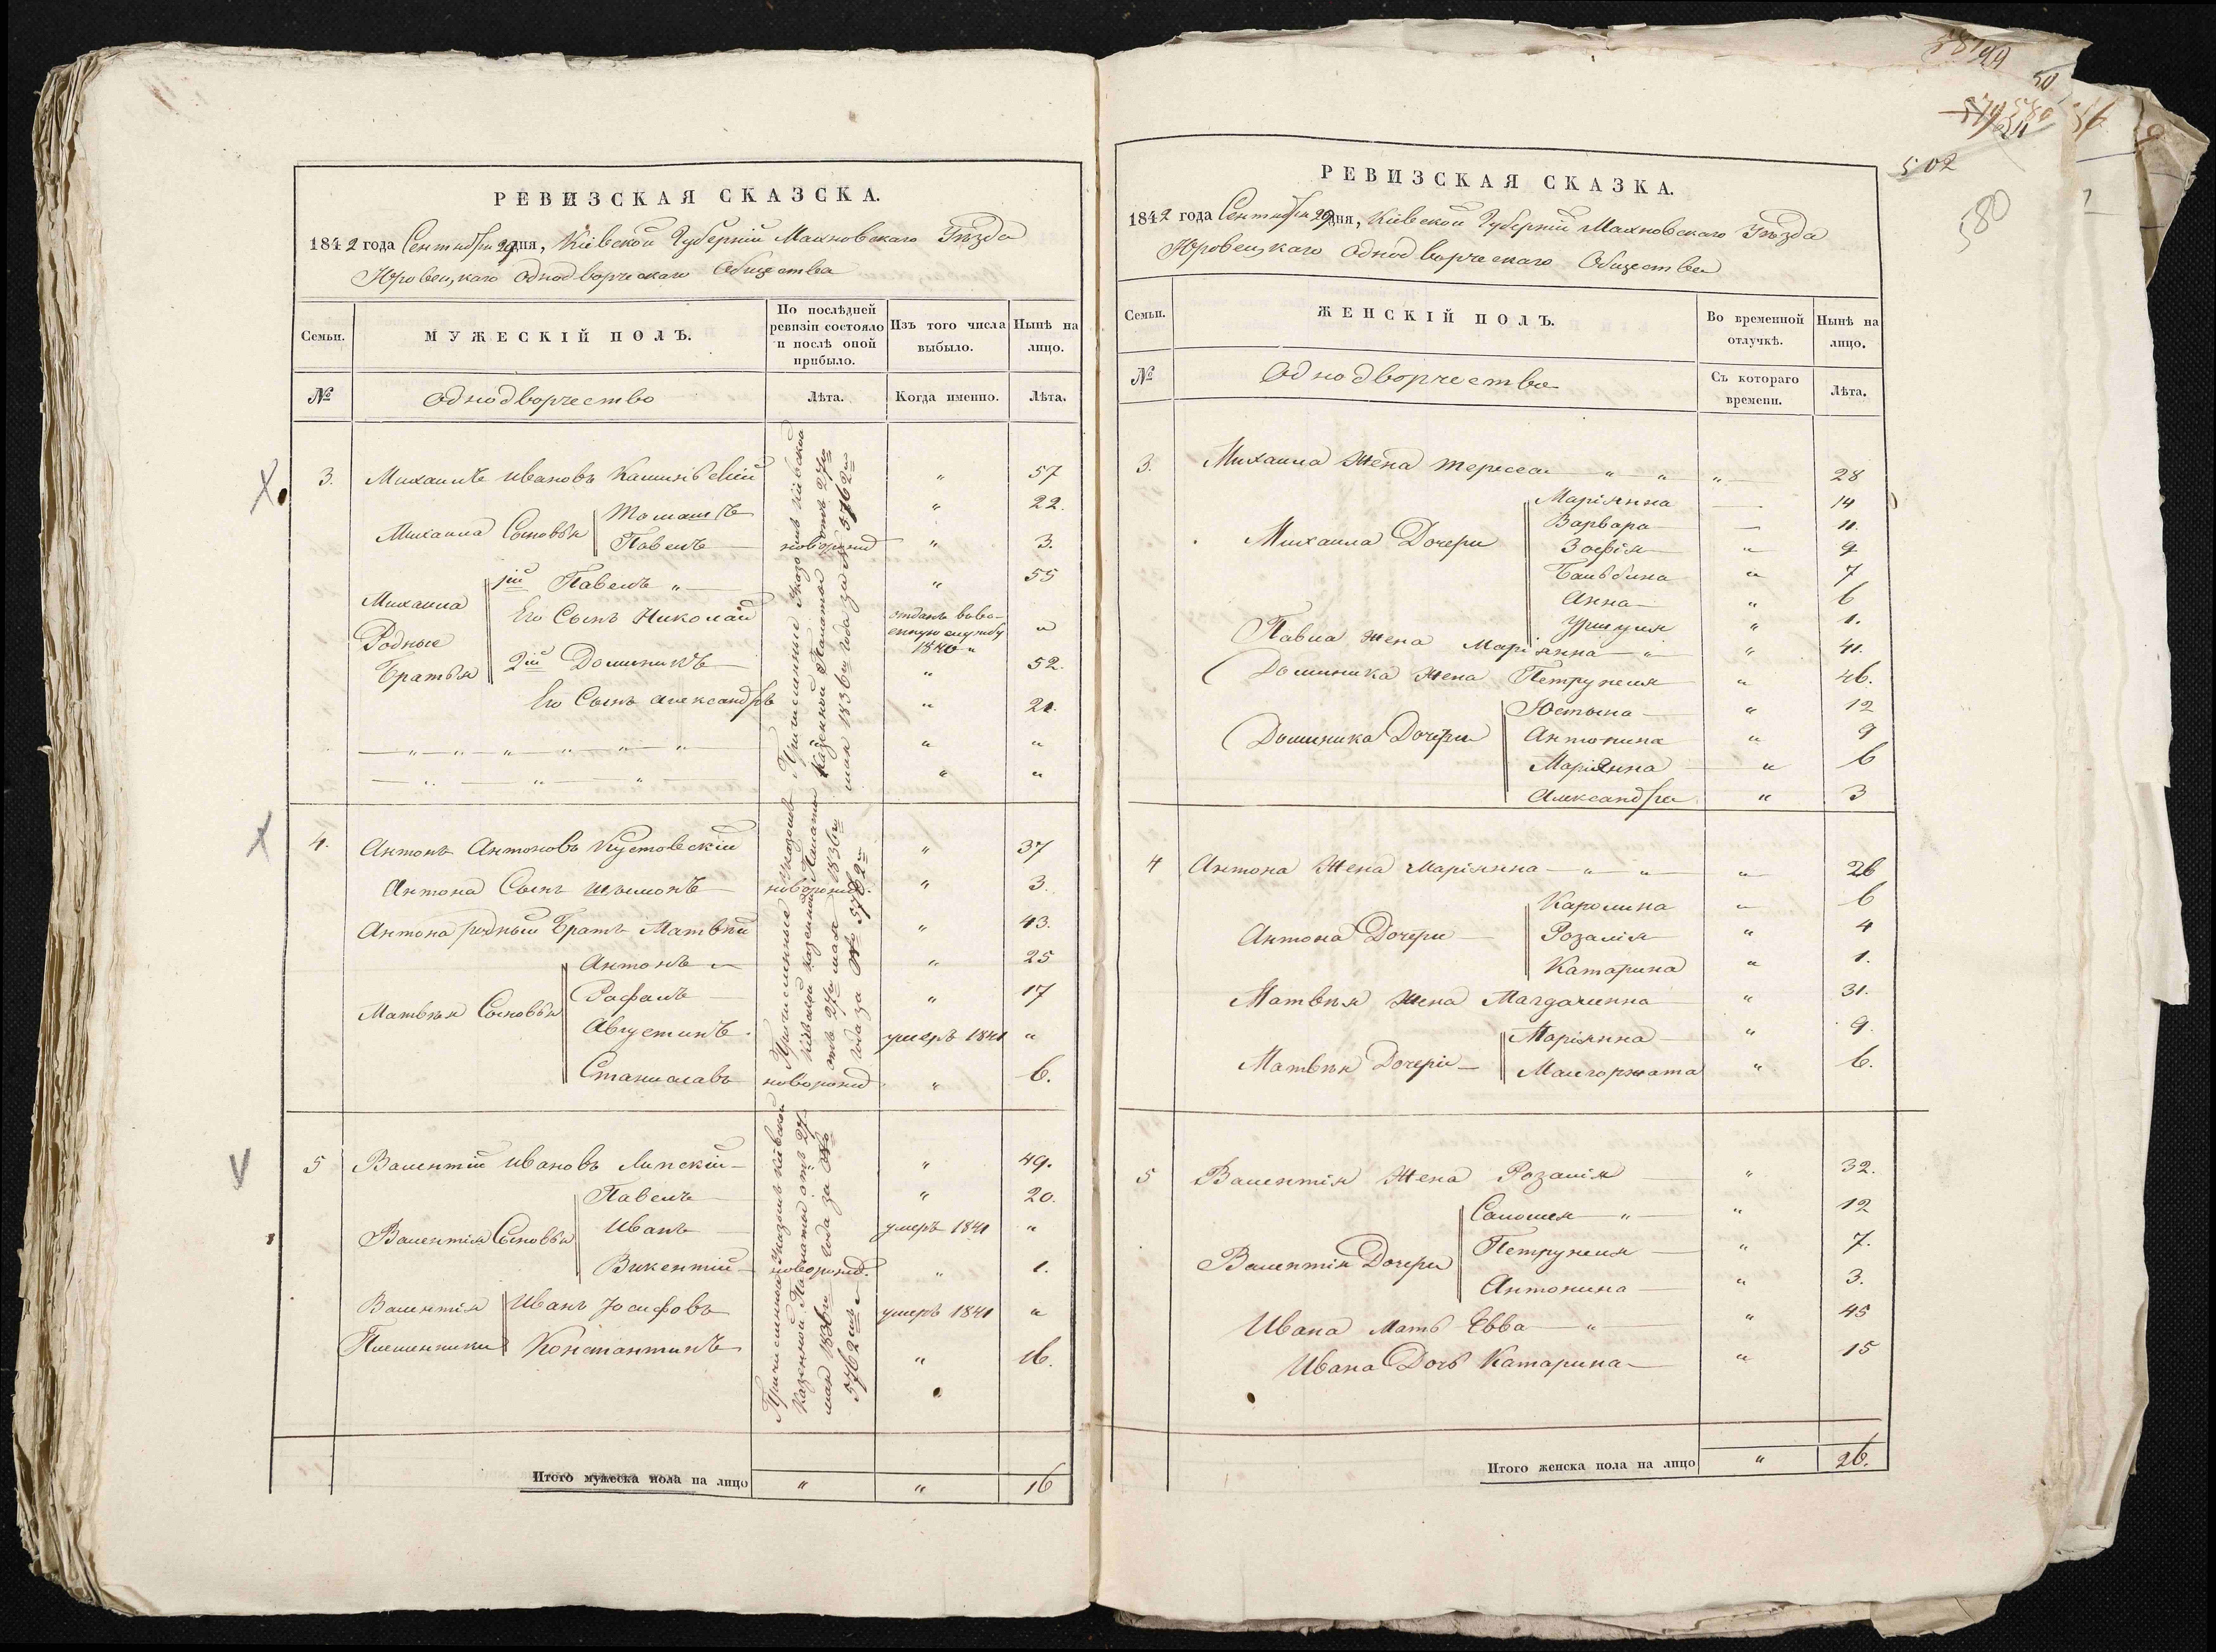 РЕВИЗСКАЯ СКАЗСКА.
1842 года Сентября 29 дня, Кіевской Губерніи Махновскаго Уѣзда
Юровецкаго Однодворческаго Общества
Семьи.
МУЖЕСКІЙ ПОЛЪ.
По послѣдней ревизіи состояло и послѣ оной прибыло.
Изъ того числа выбыло.
Нынѣ на лицо.
№
Однодворчество
Лѣта.
Когда именно.
Лѣта.
3. Михаилъ Ивановъ " 57
Михаила Сыновья Томашъ " 22.
Павелъ новорожд " 3.
Михаила Родные Братья
1ій Павелъ " " 55
Его Сынъ Николай отданъ въ военную службу 1840 " "
2ій Доминикъ " 52.
Его Сынъ Александръ " 20.
Причисленные Указомъ Кіевской Казенной Палаты отъ 27го мая 1836го года за № 5762м
4. Антонъ Антоновъ Кустовскій " 37
Антона Сынъ Шымонъ новорожд. " 3.
Антона родный Братъ Матвѣй " 43.
Матвѣя Сыновья Антонъ " 25
Рафалъ " 17
Августинъ умеръ 1841 "
Станиславъ новорожд " 6.
Причисленные Указомъ Кіевской Казенной Палаты отъ 27го мая 1836го года за № 5762м
5 Валентій Ивановъ Липскій " 49.
Валентія Сыновья Павелъ " 20.
Иванъ умеръ 1841 "
Викентій новорожд. " 1.
Валентія Племенники Иванъ Іосифовъ умеръ 1841 "
Константинъ " 16.
Причисленной Указомъ Кіевской Казенной Палаты отъ 27 мая 1836го года за № 5762мъ
Итого мужеска пола на лицо " " 16
РЕВИЗСКАЯ СКАЗКА.
1842 года Сентября 29 дня, Кіевской Губерніи Махновскаго Уѣзда
Юровецкаго Однодворческаго Общества
Семьи.
ЖЕНСКІЙ ПОЛЪ.
Во временной отлучкѣ.
Нынѣ на лицо.
№
Однодворчества
Съ котораго времени.
Лѣта.
3. Михаила Жена Тересса " " " 28
Михаила Дочери Маріянна — 14
Варвара — 11.
Зофія " 9
Бальбина " 7
Анна " 6
Уршуля " 1.
Павла жена Маріянна " " 41.
Доминика Жена Петрунеля " 46.
Доминика Дочери Юстына " 12
Антонина " 9
Маріянна " 6
Александра " 3
4 Антона Жена Маріянна " " " 26
Антона Дочери Каролина " 6
Розалія " 4
Катарина " 1.
Матвѣя Жена Магдаленна " 31.
Матвѣя Дочери Маріянна " 9
Малгоржата " 6.
5 Валентія Жена Розалія " 32.
Валентія Дочери Саломея " " 12
Петрунеля " 7.
Антонина " 3.
Ивана Мать Евва " " 45
Ивана Дочь Катарина " 15
Итого женска пола на лицо " 26.
502
580